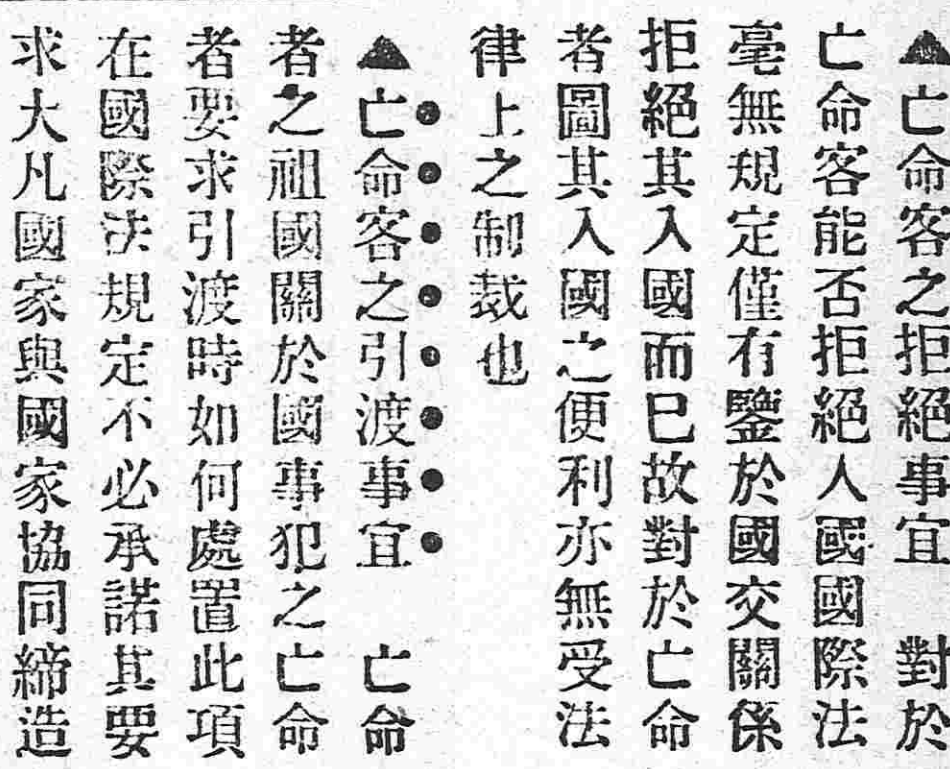 ▲亡命客之拒絕事宜　對於
亡命客能否拒絕人國國際法
毫無規定僅有鑒於國交關係
拒絕其入國而巳故對於亡命
者圖其入國之便利亦無受法
律上之制裁也
▲亡命客之引渡事宜　亡命
者之祖國關於國事犯之亡命
者要求引渡時如何處置此項
在國際法規定不必承諾其要
求大凡國家與國家協同締造